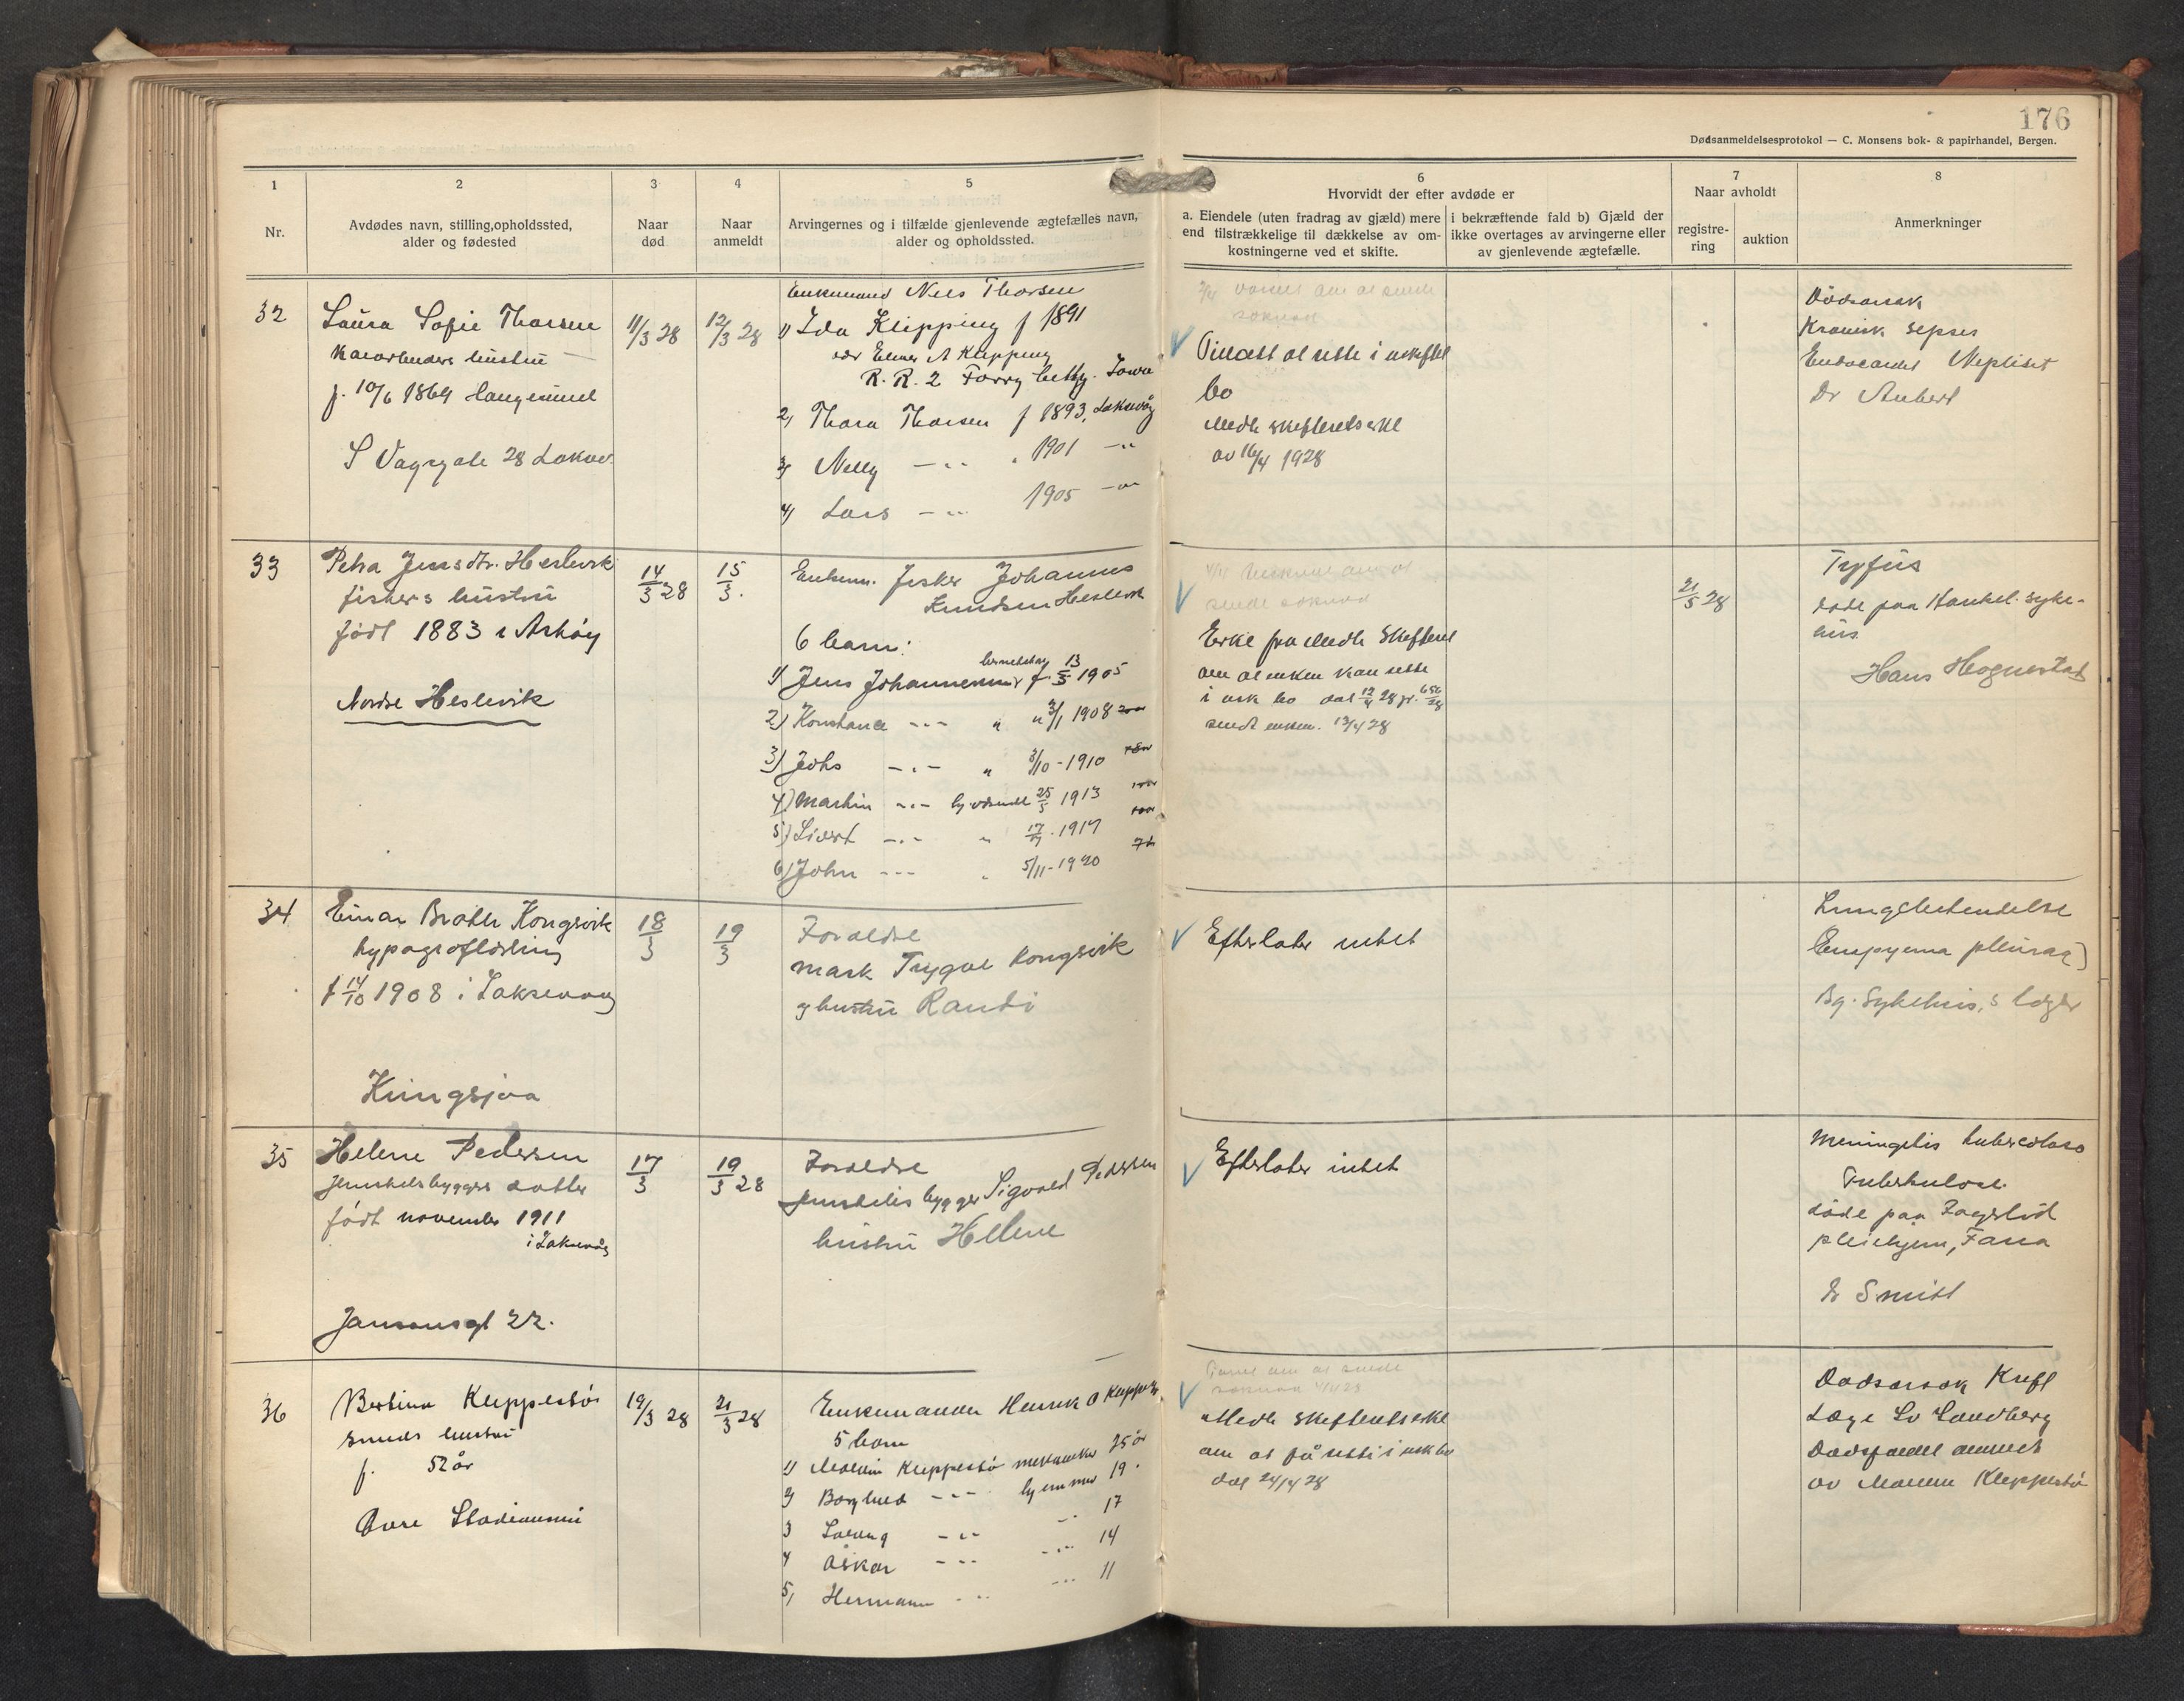 176
Dødsanmeldelsesprotokol — C. Monsens bok- & papirhandel, Bergen.
1
Nr.
2
Avdødes navn, stilling, opholdssted,
alder og fødested
3
Naar
død
4
Naar
anmeldt
5
Arvingernes og i tilfælde gjenlevende ægtefælles navn,
alder og opholdssted.
6
Hvorvidt der efter avdøde er
a. Eiendele (uten fradrag av gjæld) mere
end tilstrækkelige til dækkelse av om-
kostningerne ved et skifte.
i bekræftende fald b) Gjæld der
ikke overtages av arvingerne eller
av gjenlevende ægtefælle.
7
Naar avholdt
registre-
ring
auktion
8
Anmerkninger
32
Laura Sofie Thorsen
hustru
f. 10/6 1864 Haugesund
S Vagsgate 28 Laksev.
11/3 28
12/3 28
Enkemand Nils Thorsen
1) Ida Klipping f 1891
adr Elmer A Klipping
R. R. 2 Iowa
2) Thora Thorsen f 1893, Laksevåg
3) Nelly -"- " 1901 -"-
4) Lars -"- 1905 -"-
Tillatt at sitte i uskiftet
bo
Medh skifteretserkl
av 16/4 1928
Dødsarsak
Kronisk sepsis
Endocardit
Dr Aubert
33
Petra Jensdtr. Heslevik
fiskers hustru
født 1883 i Askøy
Nordre Heslevik
14/3 28
15/3.
Enkem. fisker Johannes
Knudsen Heslevik
6 barn:
1) Jens Johannessen f. 13/5 1905
2) Konstance -"- " 3/1 1908
3) Johs -"- " 3/10 - 1910
4) Martin -"- hjemme 25/5 1913
5) Sivert -"- " 17/9 . 1917
6) John -"- " 5/11 - 1920
Erkl fra Medh Skifteret
om at enken kan sitte
i usk bo dat 12/4 28
sendt enken. 13/4 28
21/5 28
Tyfus
døde paa Haukel. syke-
hus.
Hans Hognestad
34
Einar Brath Kongsvik
typograflærling
f 14/10 1908 i Laksevaag
Kringsjaa
18/3
19/3
Forældre
mask Trygve Kongsvik
og hustru Randi
Efterlater intet
Lungebetendelse
Empyema pleurae)
Bg. Sykehus, s læger
35
Helene Pedersen
datter
født november 1911
i Laksevåg
Jansonsgt 22.
17/3
19/3 28
Forældre
bygger Sigvald Pedersen
hustru Hellene
Efterlater intet
Meningitis tuberculosa
Tuberkulose.
døde paa Fagerlid
pleiehjem, Fana
Dr Smitt
36
Bertina Kleppestø
smeds hustru
f. 52 år
Øvre
19/3 28
21/3 28
Enkemanden Henrik O Kleppestø
5 barn
1) Kleppestø mekaniker 25 år
2) Borghild -"- hjemme 19 "
3 Solveig -"- -"- 17
4 Oskar -"- -"- 14
5, Hermann -"- -"- 11
Medh Skifteretserkl
om at få sitte i usk bo
dat 24/4 28
Dødsarsak Kreft
Læge Lv Sandberg
Dødsfaldet anmeldt
av Kleppestø